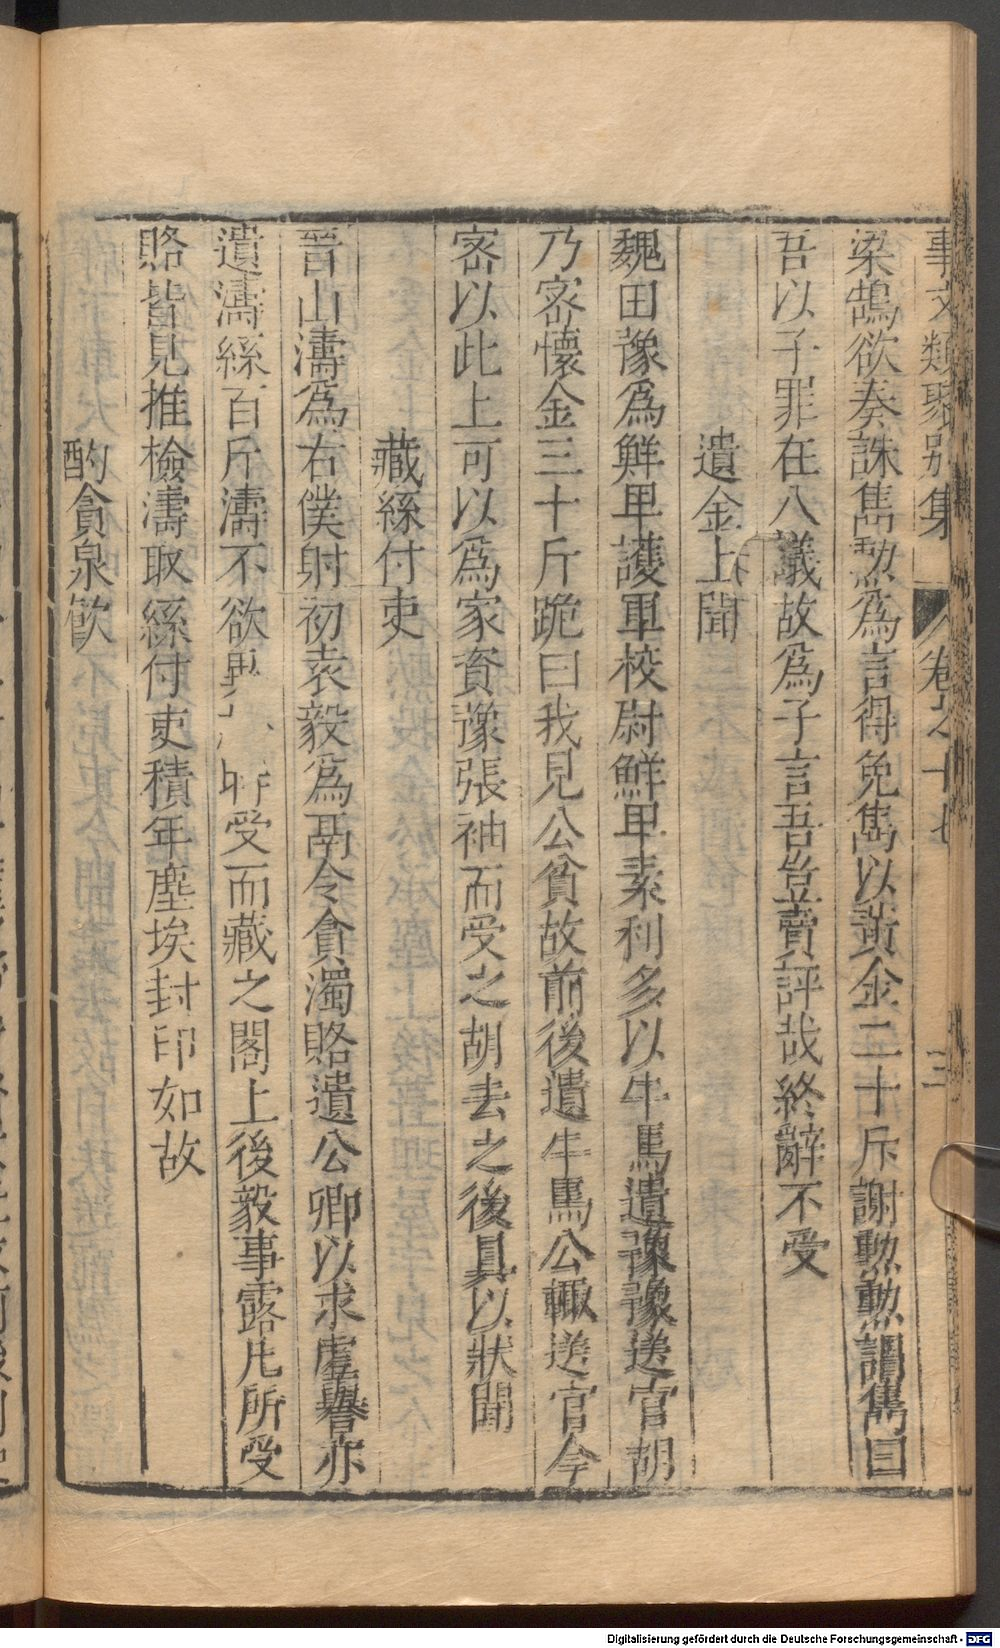 事文類聚別集 卷之十七 三
梁鵠欲奏誅雋勲爲言得免雋以黃金二十斤謝勲勲謂雋曰
吾以子罪在八議故爲子言吾豈賣評哉終辭不受
遺金上聞
魏田豫爲鮮卑護軍校尉鮮卑素利多以牛馬遺豫豫送官胡
乃宻懷金三十斤跪曰我見公貧故前後遺牛馬公輙送官今
宻以此上可以爲家資豫張袖而受之胡去之後具以狀聞
藏絲付吏
晉山濤爲右僕射初袁毅爲鬲令貪濁賂遺公卿以求虛譽亦
遺濤絲百斤濤不欲異 受而藏之閣上後毅事露凡所受
賂皆見推檢濤取絲付吏積年塵埃封印如故
酌貪泉飮
Digitalisierung gefördert durch die Deutsche Forschungsgemeinschaft - DFG